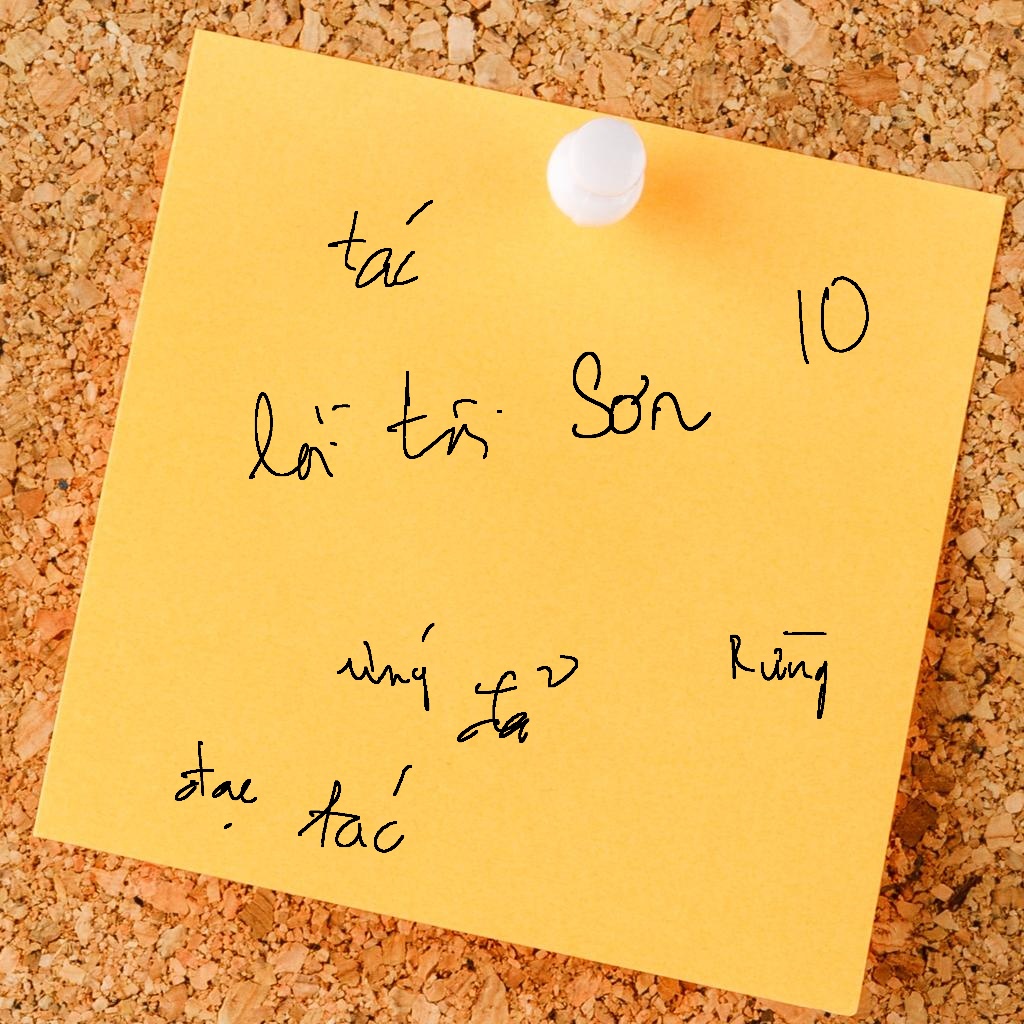 tác
10
lời tôi Sơn
ứng đã Rừng
đạc tác